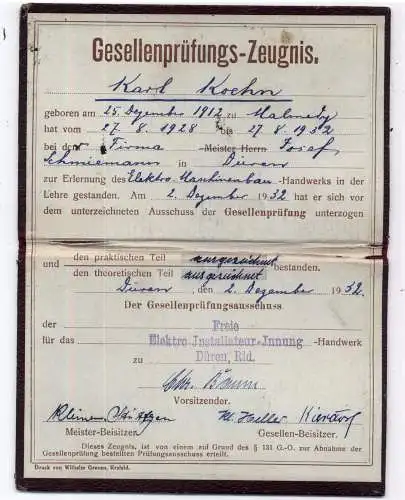 Gesellenprüfungs-Zeugnis.
Karl Koehn
geboren am 25. Dezember 1912 zu Malmedy
hat vom 27. 8. 1928 bis 27. 8. 1932
bei der Firma Meister Herrn Josef
Schmiemann in Düren
zur Erlernung des Elektro Maschinenbau-Handwerks in der
Lehre gestanden. Am 2. Dezember 1932 hat er sich vor
dem unterzeichneten Ausschuss der Gesellenprüfung unterzogen
und den praktischen Teil ausgezeichnet
den theoretischen Teil ausgezeichnet bestanden.
Düren, den 2. Dezember 1932
Der Gesellenprüfungsausschuss
der Freie
für das Elektro Installateur-Innung -Handwerk
zu Düren, Rld.
Baum
Vorsitzender.
W. Haller
Meister-Beisitzer. Gesellen-Beisitzer.
Dieses Zeugnis, ist von einem auf Grund des § 131 G.-O. zur Abnahme der
Gesellenprüfung bestellten Prüfungsausschuss erteilt.
Druck von Wilhelm Greven, Krefeld.